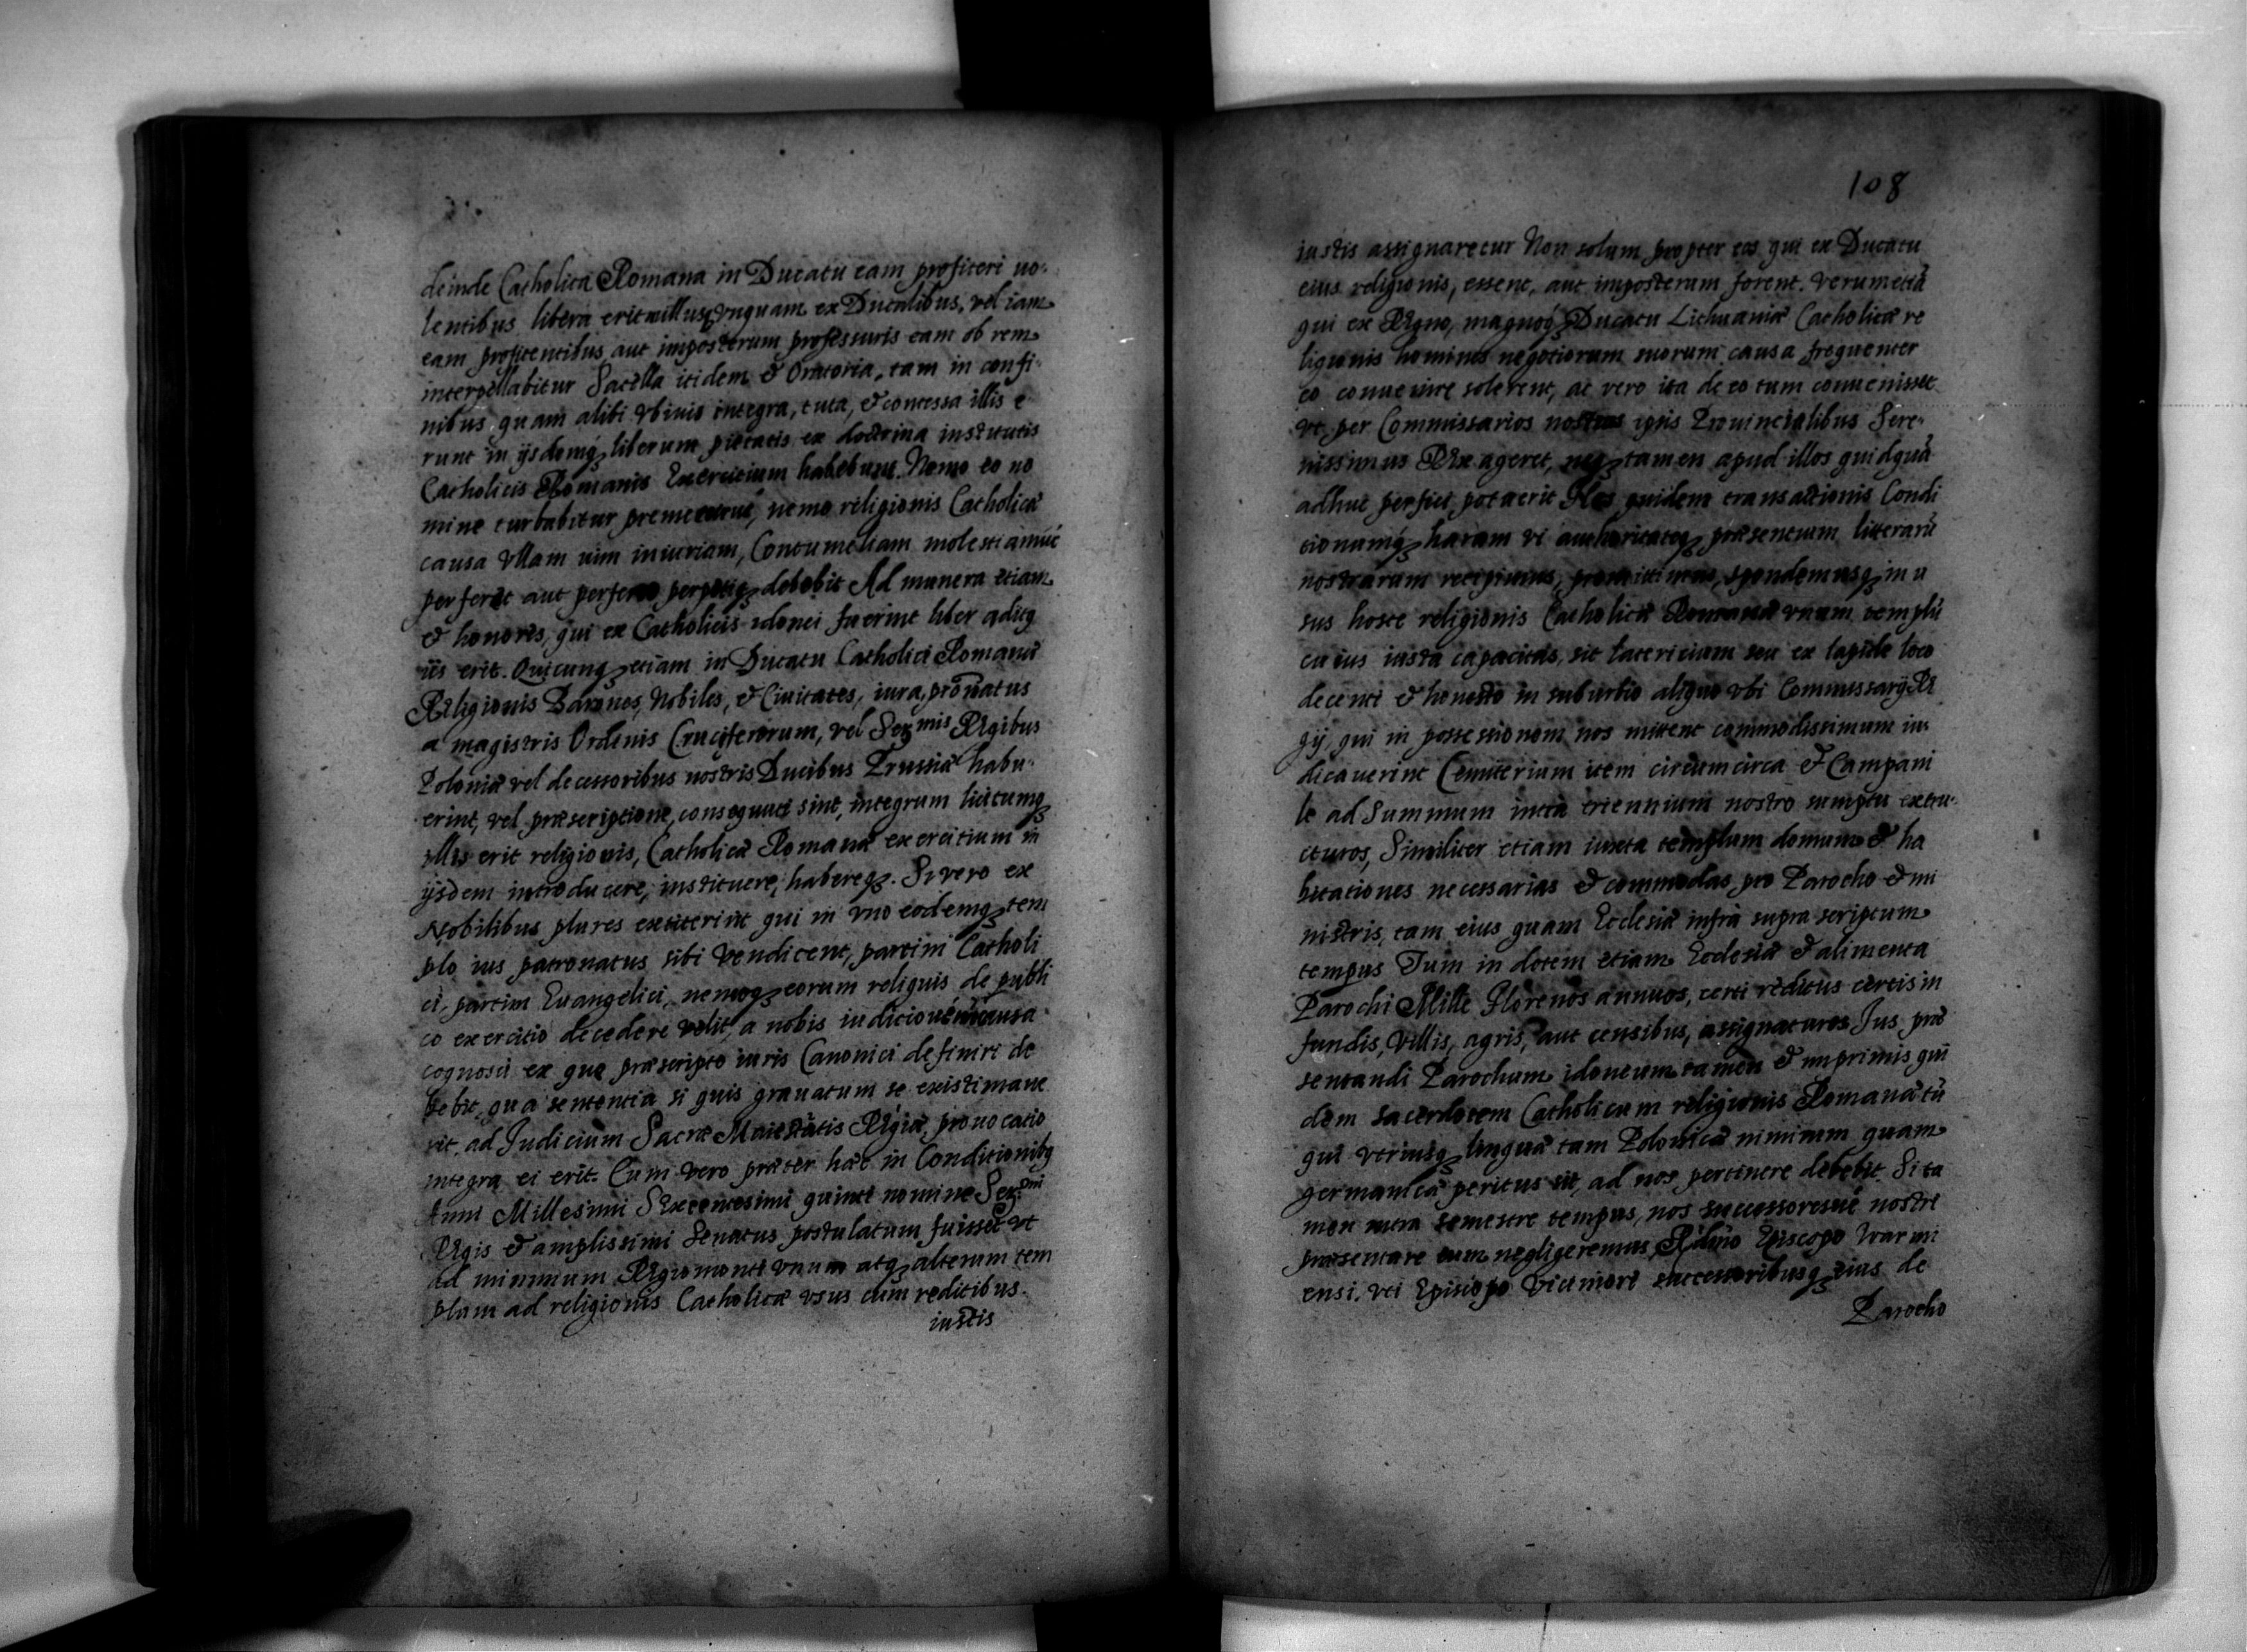 deinde Catholica Romana in Ducatu eam profiteri uo-
lentibus libera erit nullusq; vnquam ex Ducalibus, vel iam
eam profitentibus aut imposterum professuris eam ob rem
interpellabitur Sacella itidem & Oratoria, tam in confi-
nibus quam alibi vbiuis integra, tuta, & concessa illis e
runt in ijsdemq; liberum pietatis ex doctrina institutis
Catholicis Romanis Exercitium habebunt. Nemo eo no
mine turbabitur premeturue, nemo religionis Catholicæ
causa vllam uim iniuriam, Contumeliam molestiamue
perferet aut perpetiq; debebit Ad munera etiam
& honores, qui ex Catholicis idonei fuerint liber aditq
iis erit. Quicunq; etiam in Ducatu Catholici Romanæ
Religionis Barones, Nobiles, & Ciuitates, iura, pronatus
a magistris Ordinis Cruciferorum, vel Ser.mis Regibus
Poloniæ vel decessoribus nostris Ducibus Prussiæ habu-
erint, vel præscriptione, consequuti sint, integrum licitumq;
illis erit religionis, Catholicæ Romanæ exercitium in
ijsdem introducere, instituere, habereq;. Si vero ex
Nobilibus plures extiterint qui in vno eodemq; tem
plo ius patronatus sibi vendicent, partim Catholi
ci, partim Euangelici, nemoq; eorum reliquis de publi
co exercitio decedere velit, a nobis in causa
cognosci ex quo præscripto iuris Canonici definiri de
bebit, qua sententia si quis grauatum se existimaue
rit, ad Judicium Sacræ Maiestatis Regiæ, prouocatio
integra ei erit. Cum vero præter hæc in Conditionibq
Anni Millesimi Sexcentesimi quinti nomine Ser.mi
Regis & amplissimi Senatus postulatum fuisset vt
ad minimum Regiomonti vnum atq; alterum tem
plum ad religionis Catholicæ vsus cum reditibus
iustis
108
iustis assignaretur Non solum propter eos qui ex Ducatu
eius religionis, essent, aut imposterum forent. verumetiã
qui ex Regno, magnoq; Ducatu Lithuaniæ Catholicæ re
ligionis homines negotiorum suorum causa frequenter
eo conuenire solerent, at vero ita de eo tum conuenisset
vt per Commissarios nostros ipsis Prouincialibus Sere-
nissimus Rex ageret, neq; tamen apud illos quidquã
adhuc perfici potuerit Nos quidem transactionis Condi
tionumq; harum vi authoritateq; præsentium litterarũ
nostrarum recipimus, promittimus, spondemusq; in u
sus hosce religionis Catholicæ Romanæ vnum templũ
cuius iusta capacitas, sit latericium seu ex lapide loco
decenti & honesto in suburbio aliquo vbi Commissarij Re
gij, qui in possessionem nos mittent commodissimum iu-
dicauerint Cemiterium item circumcirca & Campani
le ad Summum intra triennium nostro sumptu extru-
cturos, Similiter etiam iuxta templum domum & ha
bitationes necessarias & commodas pro Parocho & mi
nistris, tam eius quam Ecclesiæ infra supra scriptum
tempus Tum in dotem etiam Ecclesiæ & alimenta
Parochi Mille Florenos annuos, certi reditus certis in
fundis, Villis, agris, aut censibus, assignaturos Jus præ
sentandi Parochum idoneum tamen & imprimis qui
dem sacerdotem Catholicum religionis Romanæ tũ
qui vtriusq; linguæ tam Polonicæ nimirum quam
germanicæ peritus sit, ad nos pertinere debebit. Si ta
men intra semestre tempus, nos successoresue nostri
præsentare eum negligeremus, Rdmo Episcopo Warmi
ensi, vti Episcopo Viciniori successoribusq; eius de
Parocho